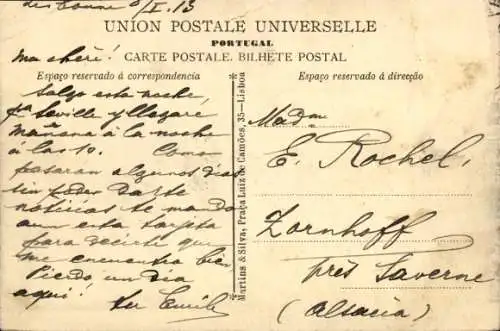 UNION POSTALE UNIVERSELLE
PORTUGAL
CARTE POSTALE. BILHETE POSTAL
Espaço reservado á correspondencia
Espaço reservado á direcção
Ma chéri!
Salgo esta noche,
pa Seville y llegaré
mañana à la noche
à las 10. Como
pasaran algunos dias
sin poder darte
noticias te mando
aun esta tarjeta
para decirte que
me encuentro bie.
Pierdo un dia
aqui! Emile
Martins & Silva, Praça Luiz de Camões, 35—Lisboa
Madme
E. Rochel,
Zornhoff
près Saverne
(Alsacia)